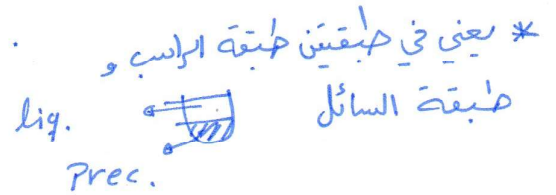 * يعني في طبقتين طبقة الراسب و
طبقة السائل
liq.
Prec.